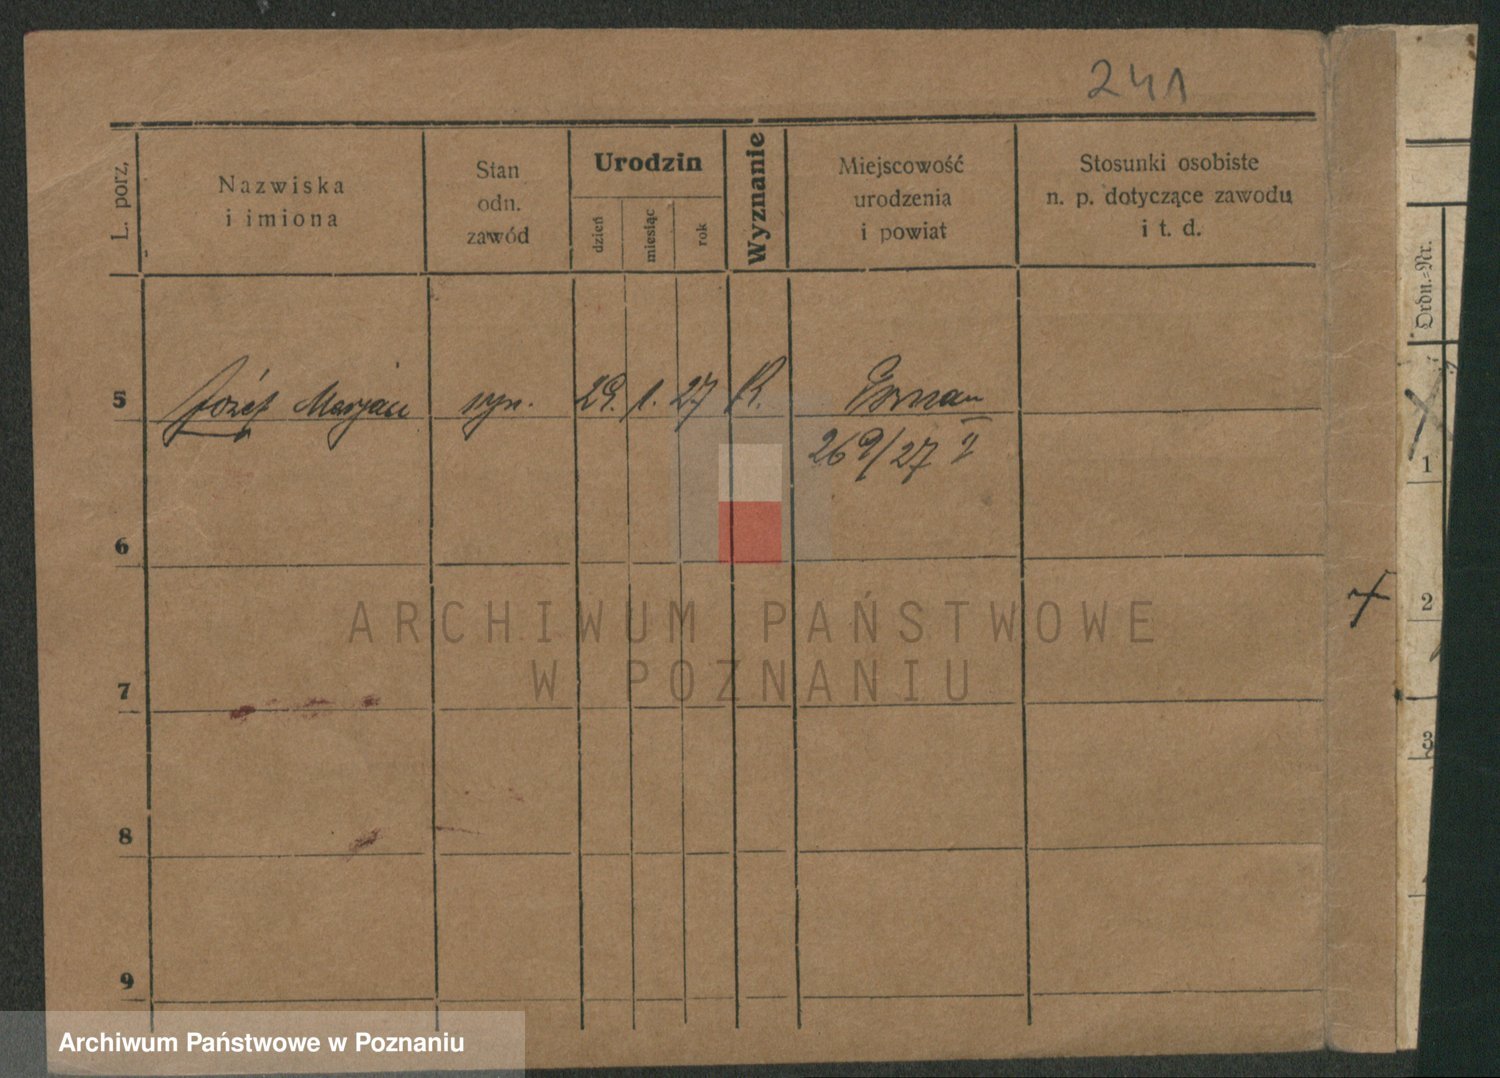 241
L. porz,
Nazwiska
i imiona
Stan
odn.
zawód
Urodzin
dzień
miesiąc
rok
Wyznanie
Miejscowość
urodzenia
i powiat
Stosunki osobiste
n. p. dotyczące zawodu
i t. d.
Ordn.=Nr.
5 Józef Marjan syn. 29. 1. 27 K.
26 9/27
1
6
2
7
3
8
9
ARCHIWUM PAŃSTWOWE
W POZNANIU
Archiwum Państwowe w Poznaniu